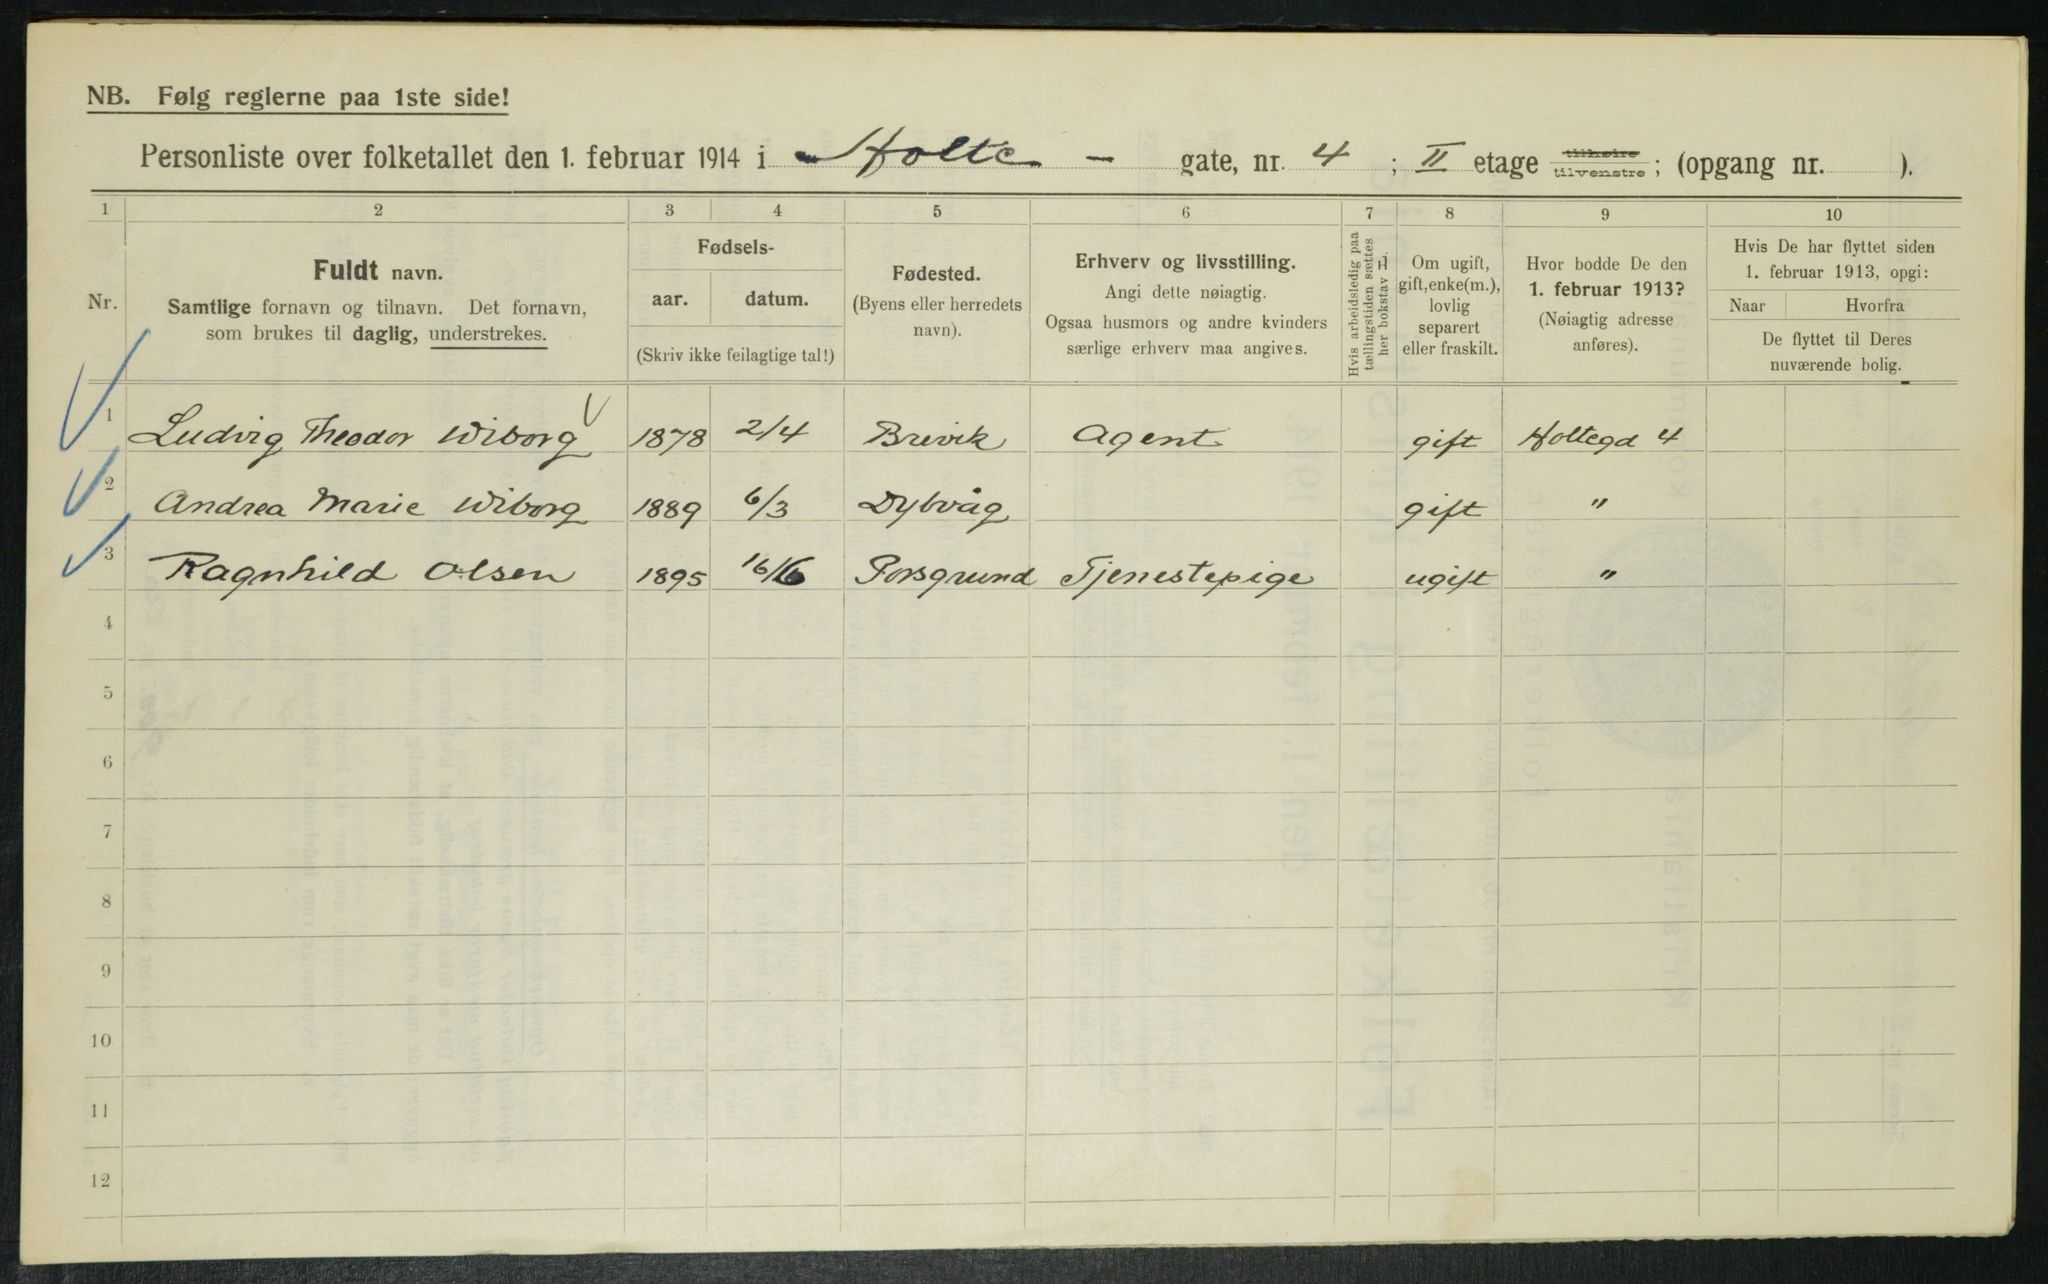 NB. Følg reglerne paa 1ste side!
Personliste over folketallet den 1. februar 1914 i Holte - gate, nr. 4 ; II etage tilhøire tilvenstre ; (opgang nr. ).
1 2 3 4 5 6 7 8 9 10
Nr.
Fuldt navn.
Samtlige fornavn og tilnavn. Det fornavn,
som brukes til daglig, understrekes.
Fødsels-
aar. datum.
(Skriv ikke feilagtige tal!)
Fødested.
(Byens eller herredets
navn).
Erhverv og livsstilling.
Angi dette nøiagtig.
Ogsaa husmors og andre kvinders
særlige erhverv maa angives.
Hvis arbeidsledig paa
tællingstiden sættes
her bokstav H
Om ugift,
gift, enke(m.),
lovlig
separert
eller fraskilt.
Hvor bodde De den
1. februar 1913?
(Nøiagtig adresse
anføres).
Hvis De har flyttet siden
1. februar 1913, opgi:
Naar Hvorfra
De flyttet til Deres
nuværende bolig.
1 Ludvig Theodor Wiborg 1878 2/4 Brevik Agent gift Holtegd 4
2 Andrea Marie Wiborg 1889 6/3 Dybvåg gift "
3 Ragnhild Olsen 1895 16/6 Porsgrund Tjenestepige ugift "
4
5
6
7
8
9
10
11
12